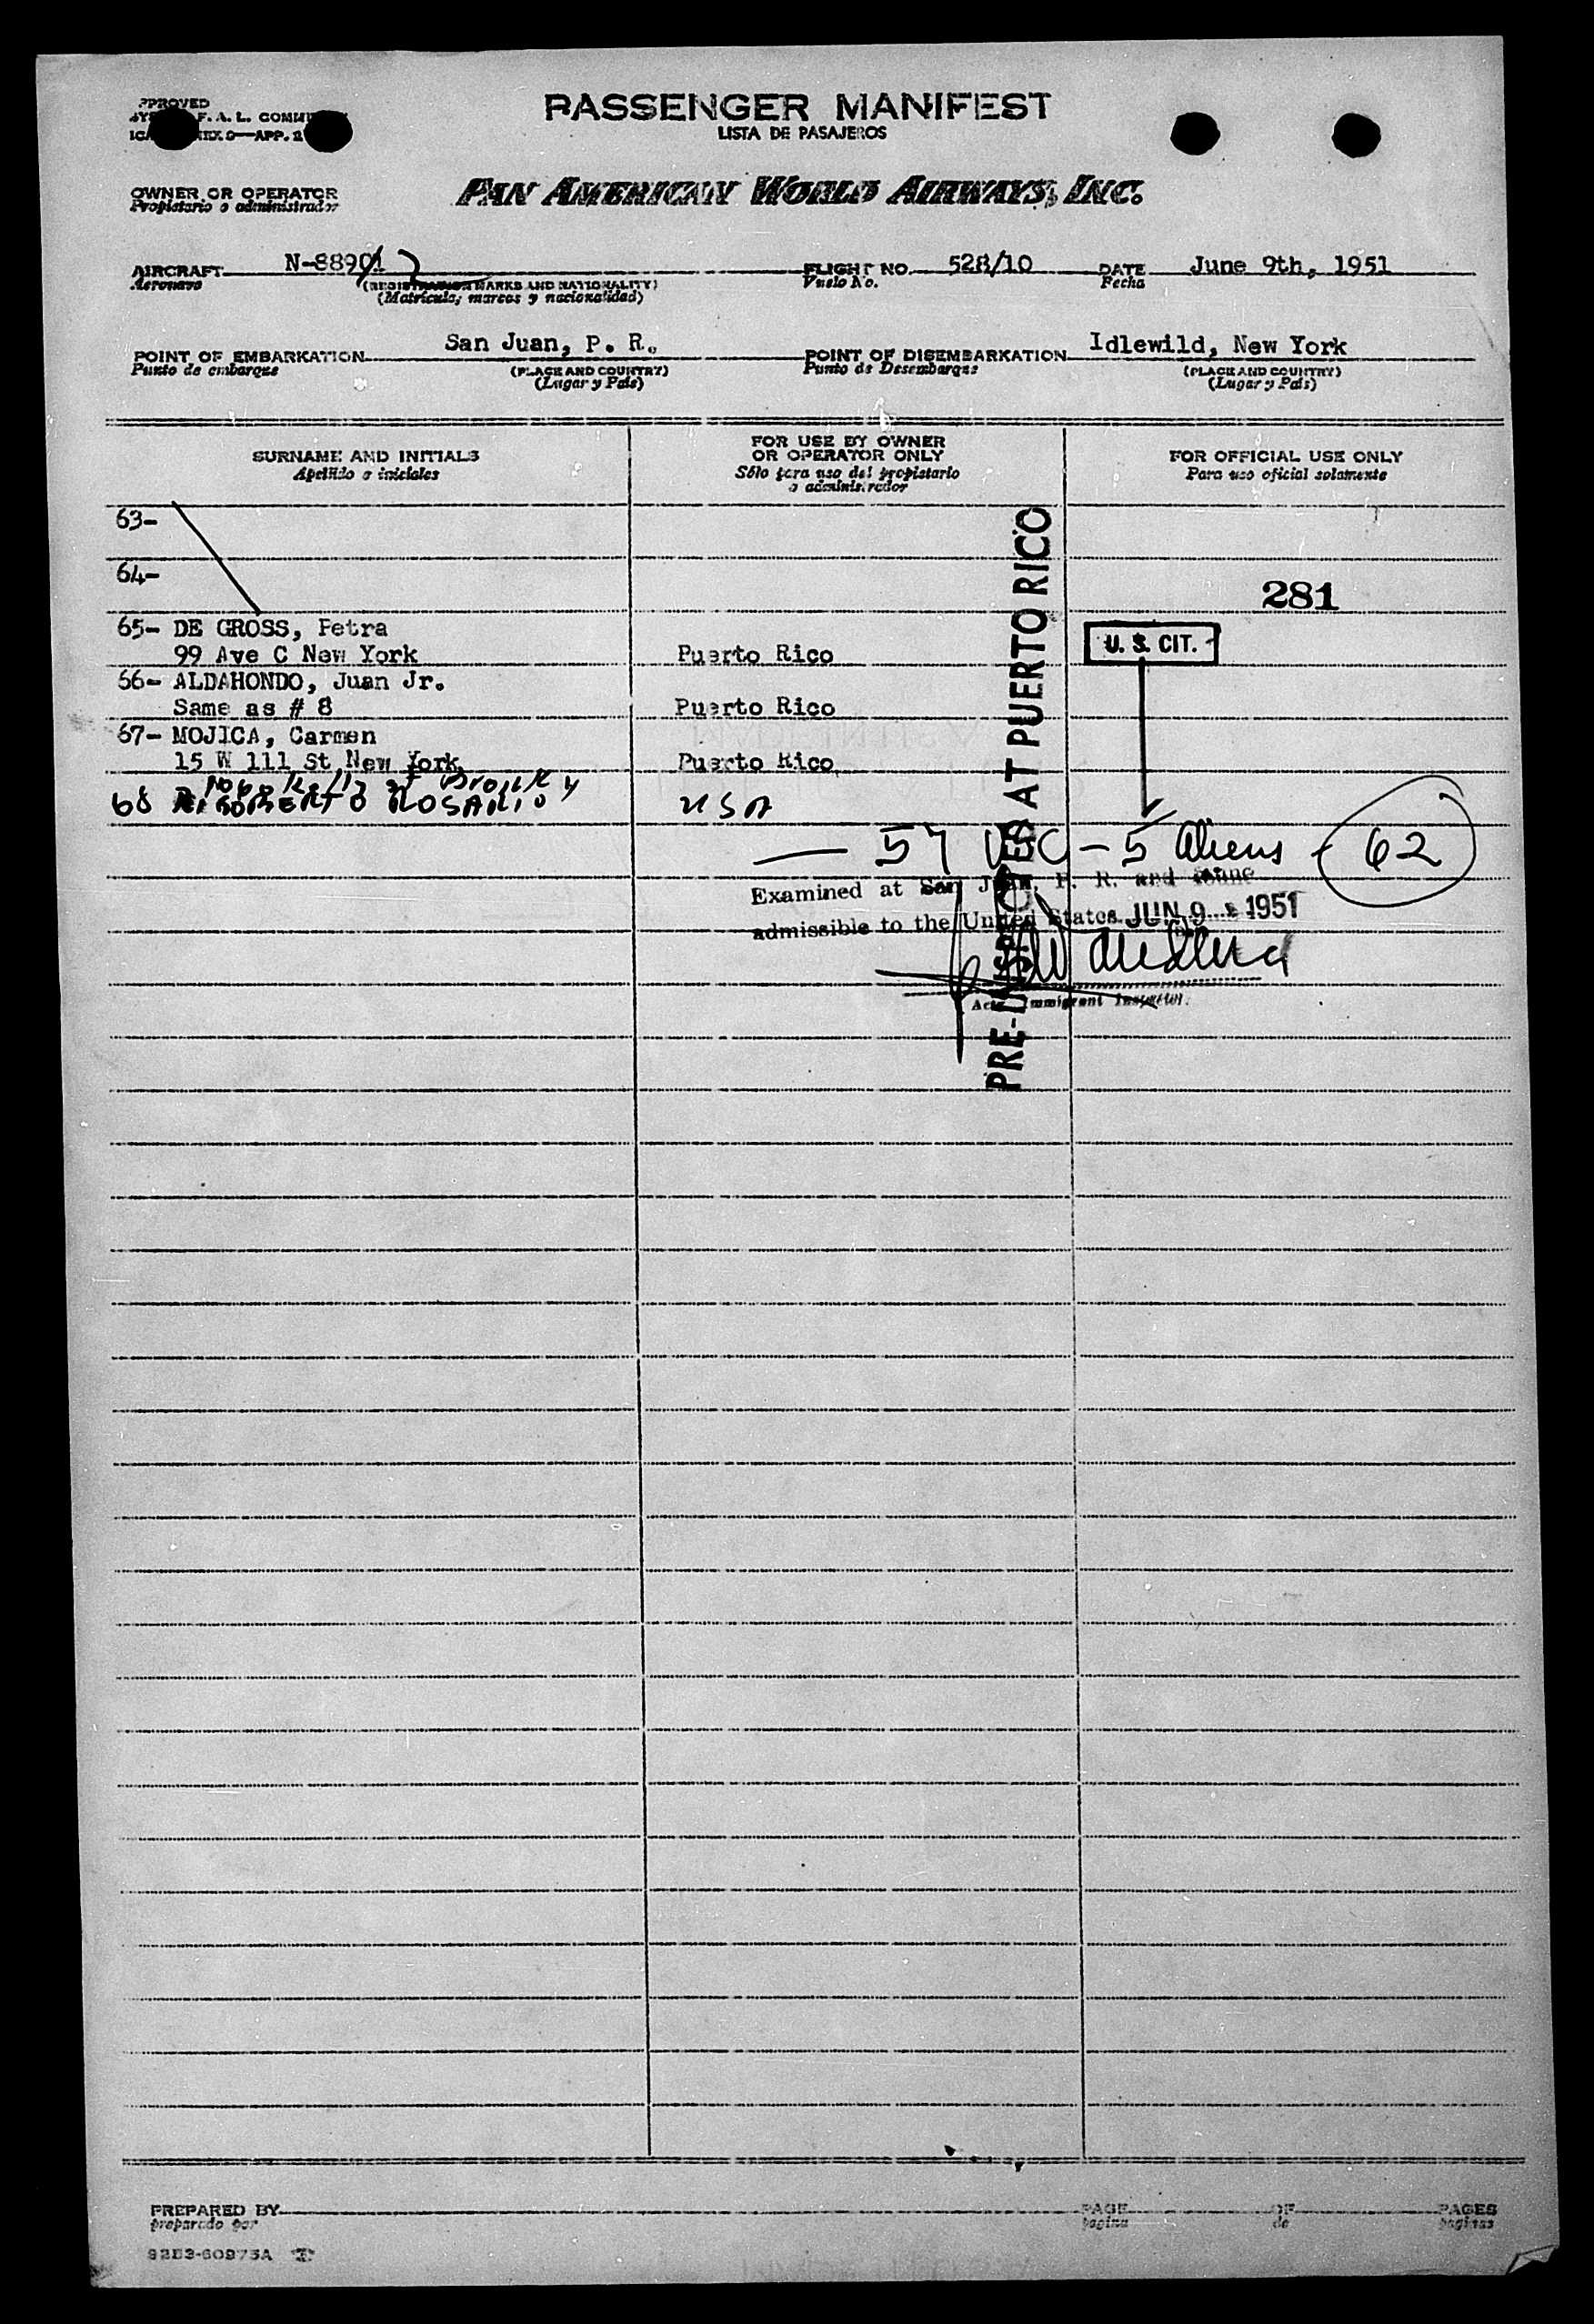 PASSENGER MANIFEST
LISTA DE PASAJEROS
APPROVED
F. A. L.
APP. 2
OWNER OR OPERATOR
Propietario o administrador
PAN AMERICAN WORLD AIRWAYS, INC.
AIRCRAFT N-8890
Aeronave
(REGISTRATION MARKS AND NATIONALITY)
(Matrícula, marcas y nacionalidad)
FLIGHT NO. 528/10
Vuelo No.
DATE June 9th, 1951
Fecha
POINT OF EMBARKATION San Juan, P. R.
Punto de embarque
(PLACE AND COUNTRY)
(Lugar y País)
POINT OF DISEMBARKATION Idlewild, New York
Punto de Desembarque
(PLACE AND COUNTRY)
(Lugar y País)
SURNAME AND INITIALS
Apellido o iniciales
FOR USE BY OWNER
OR OPERATOR ONLY
Sólo para uso del propietario
o administrador
FOR OFFICIAL USE ONLY
Para uso oficial solamente
63-
64-
281
65- DE GROSS, Petra
99 Ave C New York Puerto Rico
U. S. CIT.
66- ALDAHONDO, Juan Jr.
Same as # 8 Puerto Rico
67- MOJICA, Carmen
15 W 111 St New York Puerto Rico
68 ROSARIO USA
PRE-INSPECTED AT PUERTO RICO
57 USC - 5 Aliens - 62
Examined at San Juan, P. R. and found
admissible to the United States JUN 9 1951
Immigrant Inspector.
PREPARED BY
preparado por
PAGE OF PAGES
pagina de paginas